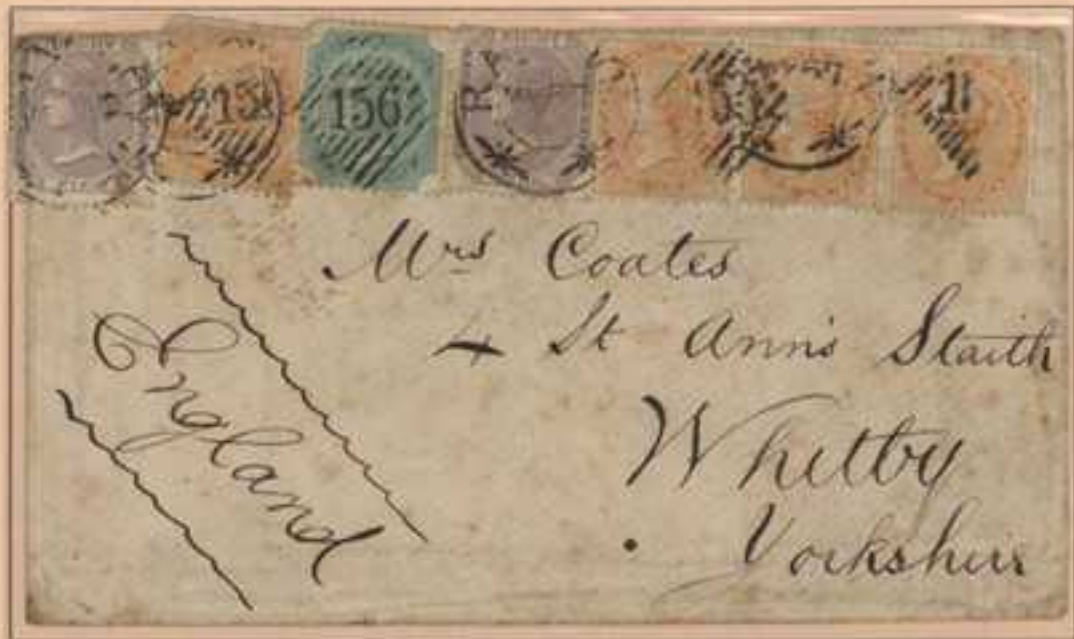 156
Mrs Coates
4 St Ann's Staith
Whitby
Yorkshire
England